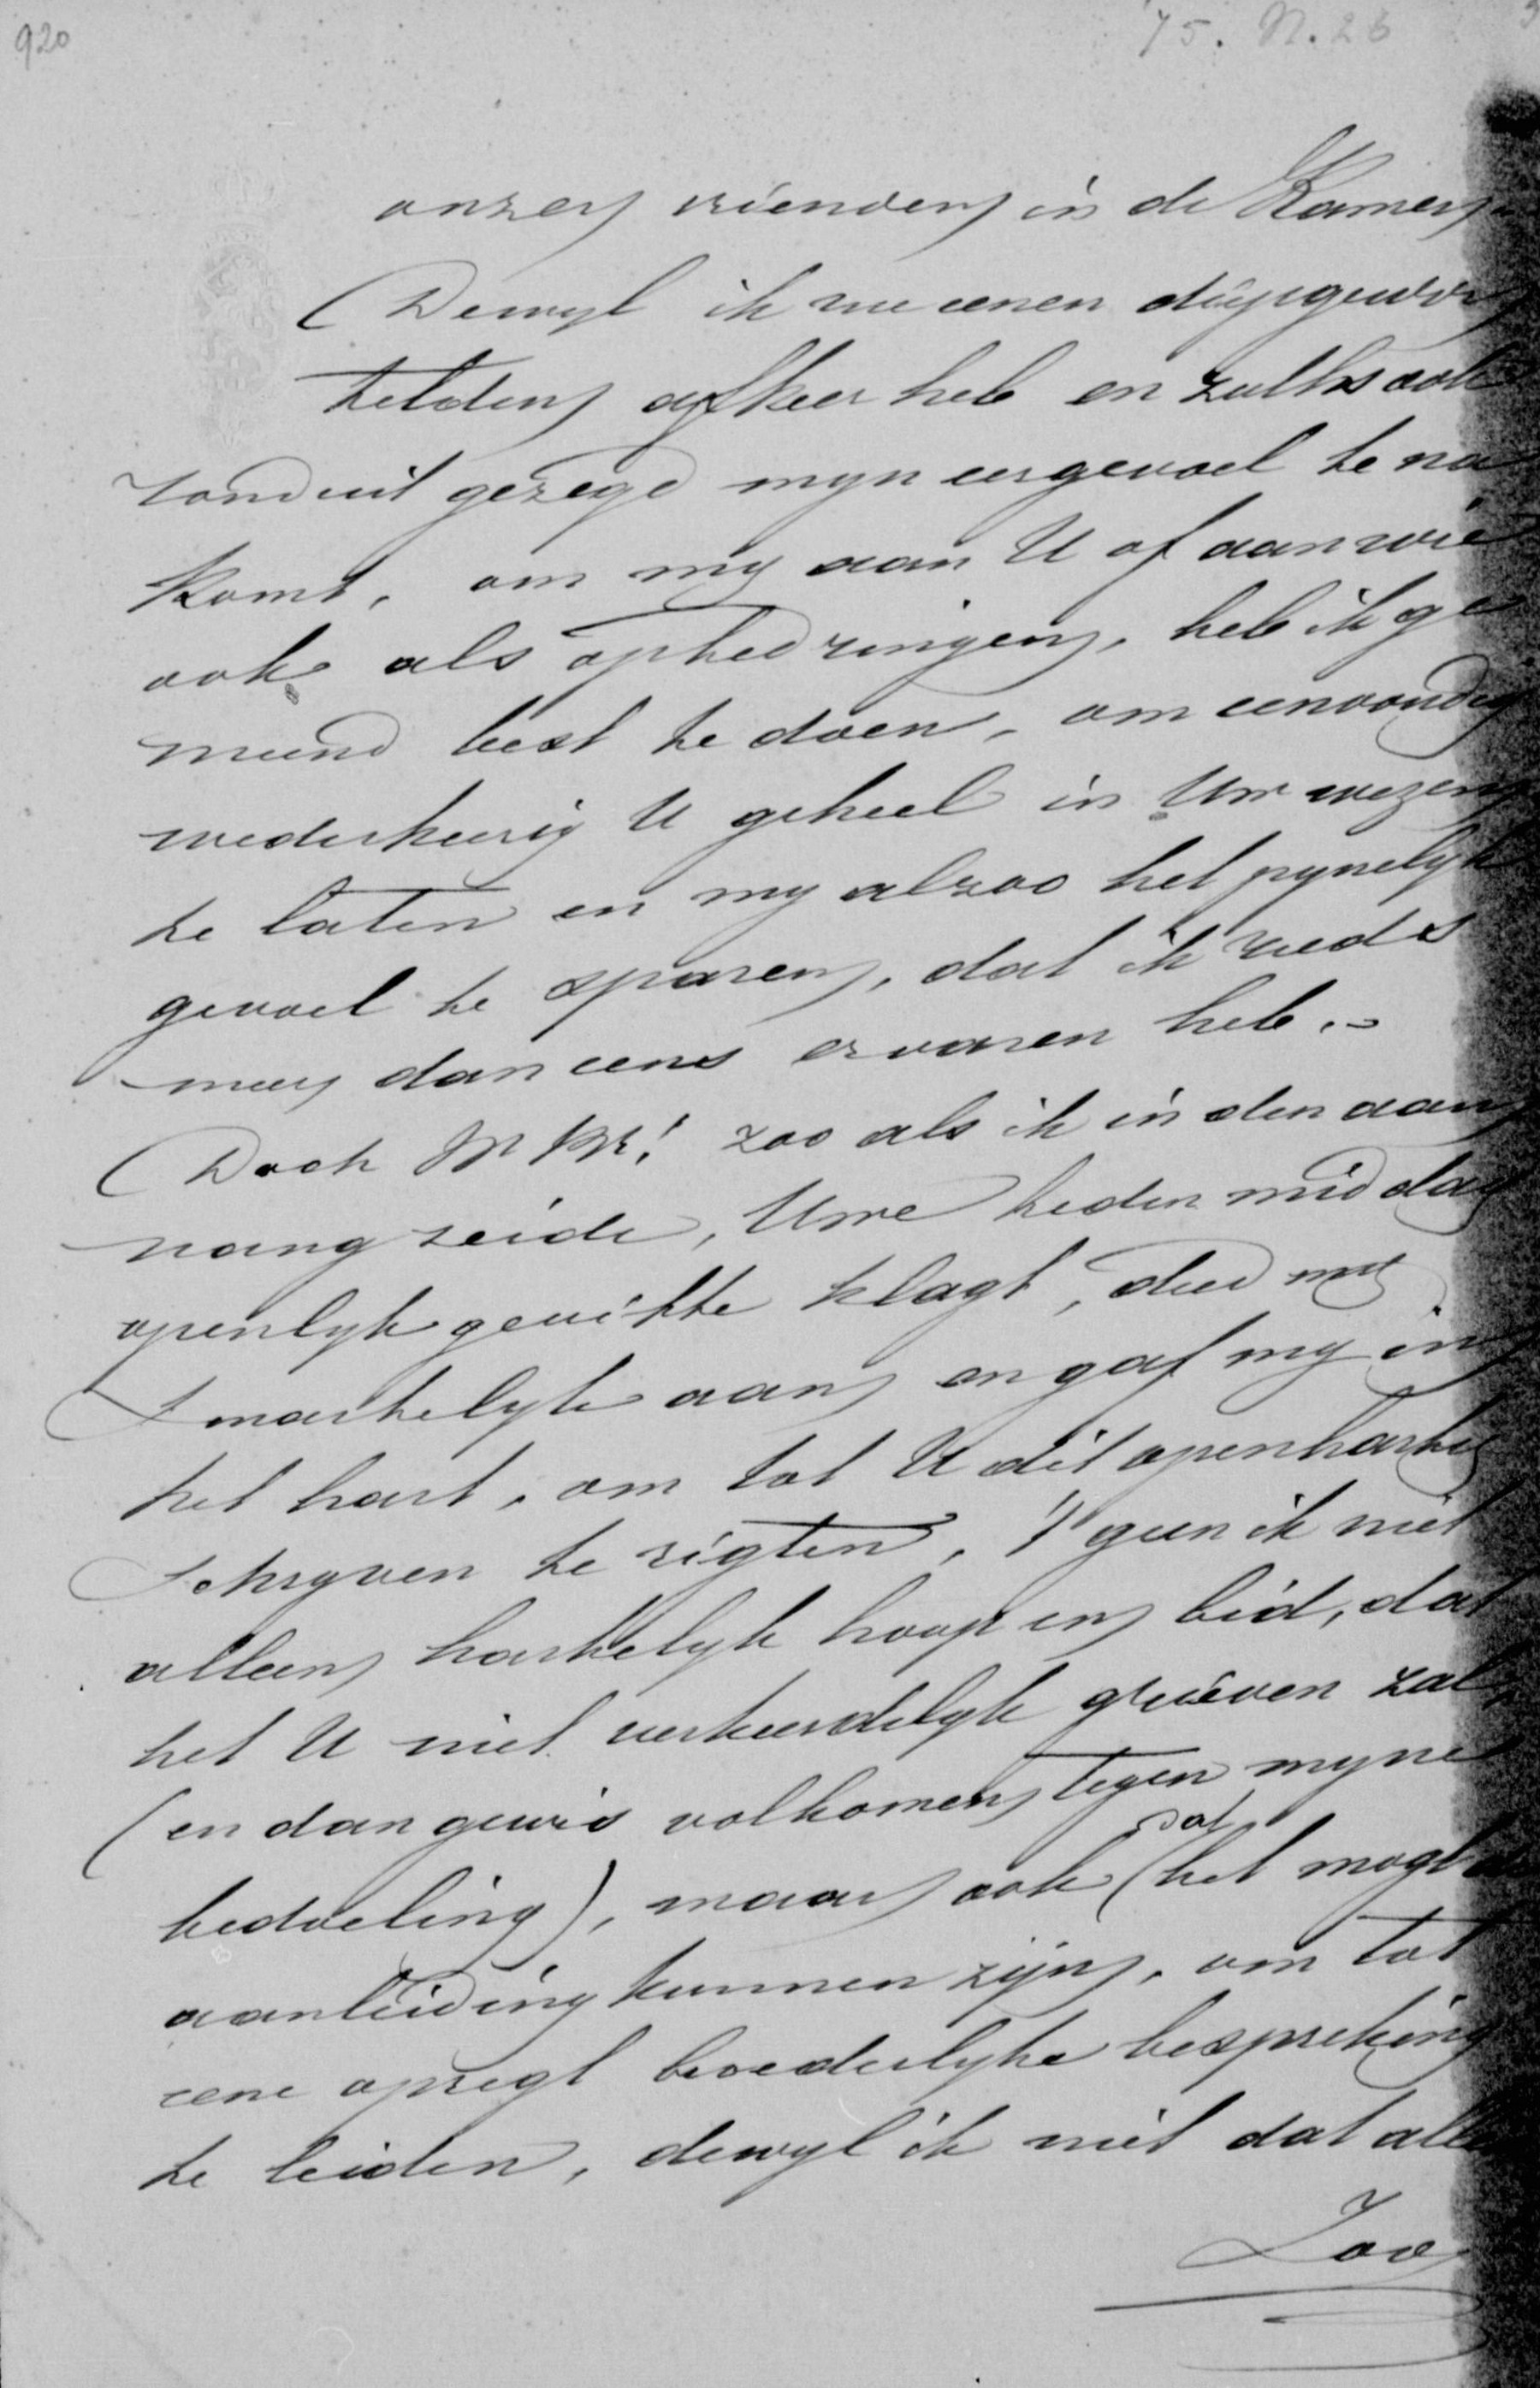 920
75. N. 26
onzer vrienden in de Kamer.
Dewyl ik nu eenen diepgewor
telden afkeer heb en zulks ook
ronduit gezegd myn eergevoel te na
komt, om my aan U of aan wie
ook als op te dringen, heb ik ge
meend best te doen, om eenvoudig
wederkeerig U geheel in Uw wezen
te laten en my alzoo het pynelyk
gevoel te sparen, dat ik reeds
meer dan eens ervaren heb.
Doch zoo als ik in den aan
vang zeide, Uwe heden middag
openlyk geuitte klagt, deed my
smartelyk aan en gaf my in
het hart, om tot U dit openhartig
schryven te rigten, 't geen ik niet
alleen hartelyk hoop en bid, dat
het U niet verkeerdelyk grieven zal
(en dan gewis volkomen tegen myne
bedoeling), maar ook dat het mogt
aanleiding kunnen zijn, om tot
eene opregt broederlyke bespreking
te leiden, dewyl ik niet dat alle
Zoo